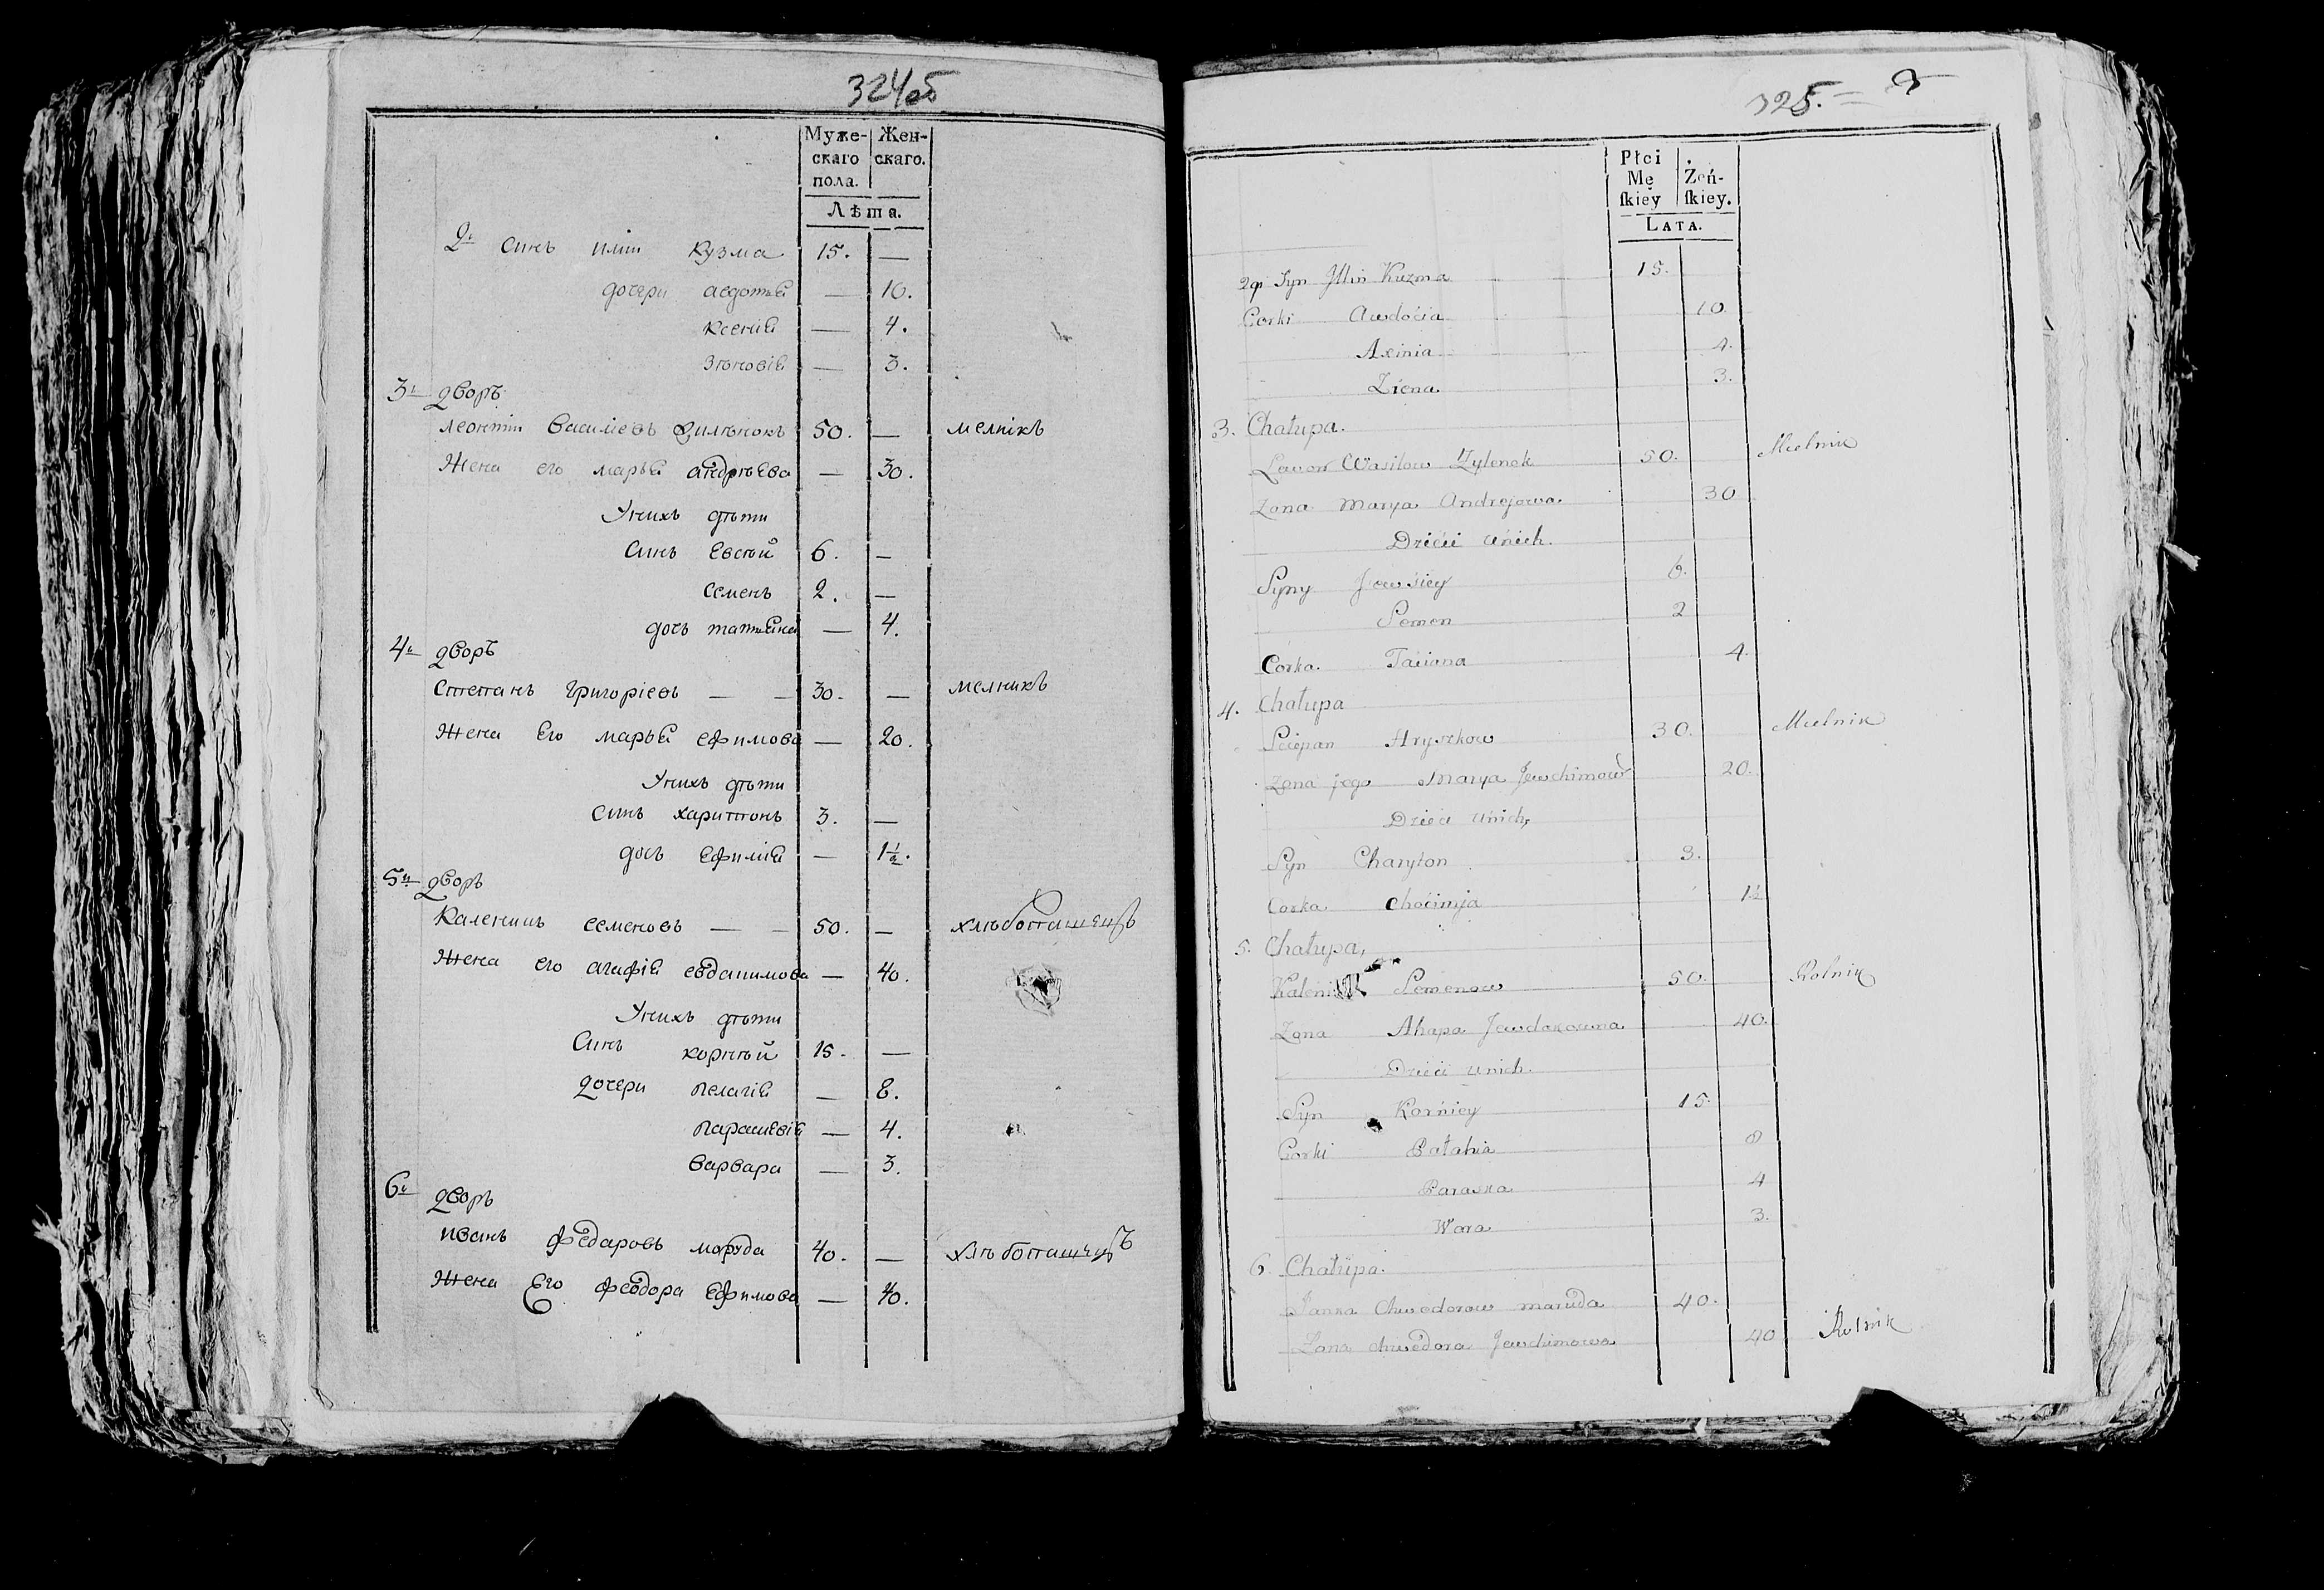 324об
Муже- Жен-
скаго скаго.
пола.
Лѣта.
2й синъ илiи Кузма 15. —
дочери авдотья — 10.
Ксенiя — 4.
Зѣновiя — 3.
3й дворъ
леонтiи васил&iевъ 50. — мелнiкъ
Жена его марья андрѣева — 30.
Унихъ дѣти
Синъ Евсѣй 6. —
Семенъ 2. —
дочь татьяна — 4.
4й дворъ
Степанъ григорiевъ — — 30. — мелникъ
Жена Его марья ефимова — 20.
Унихъ дѣти
Синъ харитонъ 3. —
дочь Ефимiя — 1½.
5й дворъ
Каленикъ семеновъ — — 50. — хлѣбопашецъ
Жена его агафiя евдакимова — 40.
Унихъ дѣти
Синъ корнѣй 15. —
Дочери пелагiя — 8.
парасковiя — 4.
варвара — 3.
6й дворъ
иванъ федаровъ маруда 40. — хлѣбопашецъ
Жена Его феодора Ефимова — 40.
325.
Płci Żeń-
Mę skiey.
skiey
LATA.
2gi Syn Jllin Kuzma 15.
Corki Awdocia 10
Axinia 4.
Ziena 3.
3. Chałupa.
Lawon Wasilow Zylonek 50. Mielnik
Zona Marya Andrejowa. 30
Dzieci unich.
Syny Jewsiey 6.
Semen 2
Corka. Taciana 4.
4. Chałupa
Sciepan Hryszkow 30. Mielnik
Zona jego Marya Jewchimow 20.
Dzieci unich,
Syn Charyton 3.
Corka Chocimija 1½
5. Chałupa,
Semenow 50. Rolnik
Zona Ahapa Jewdakowna 40.
Dzieci unich.
Syn Korniey 15.
Corki Pałahia 8
Paraska 4
Wara 3.
6. Chałupa.
Janka Chwedorow maruda 40.
Zona Chwedora Jewchimowa 40 Rolnik